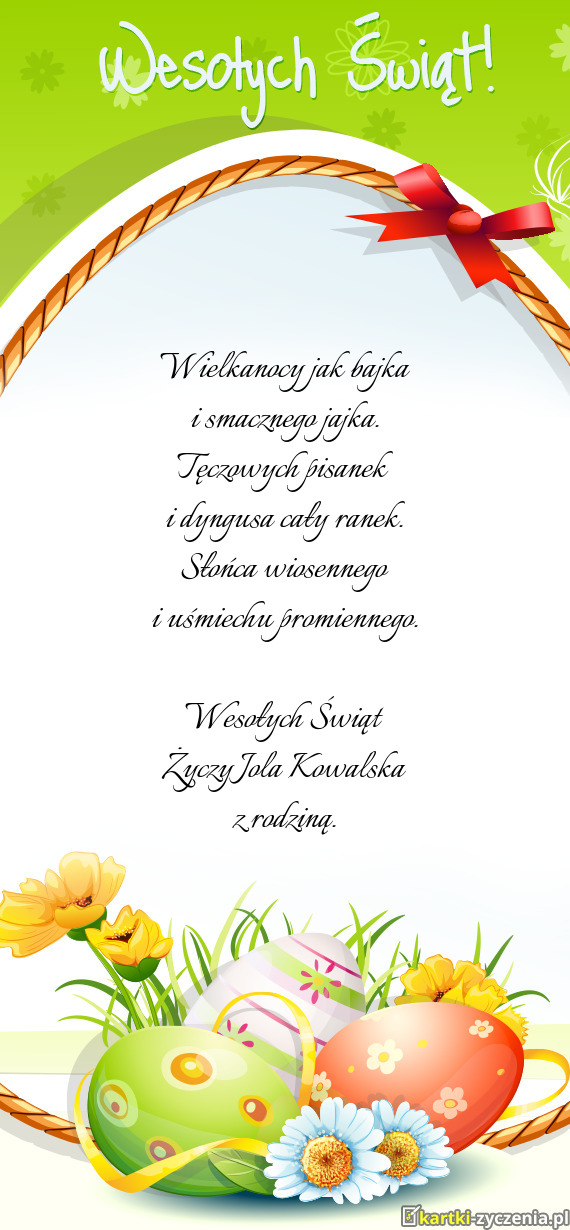 Wesołych Świąt!
Wielkanocy jak bajka
i smacznego jajka.
Tęczowych pisanek
i dyngusa cały ranek.
Słońca wiosennego
i uśmiechu promiennego.
Wesołych Świąt
Życzy Jola Kowalska
z rodziną.
kartki-zyczenia.pl